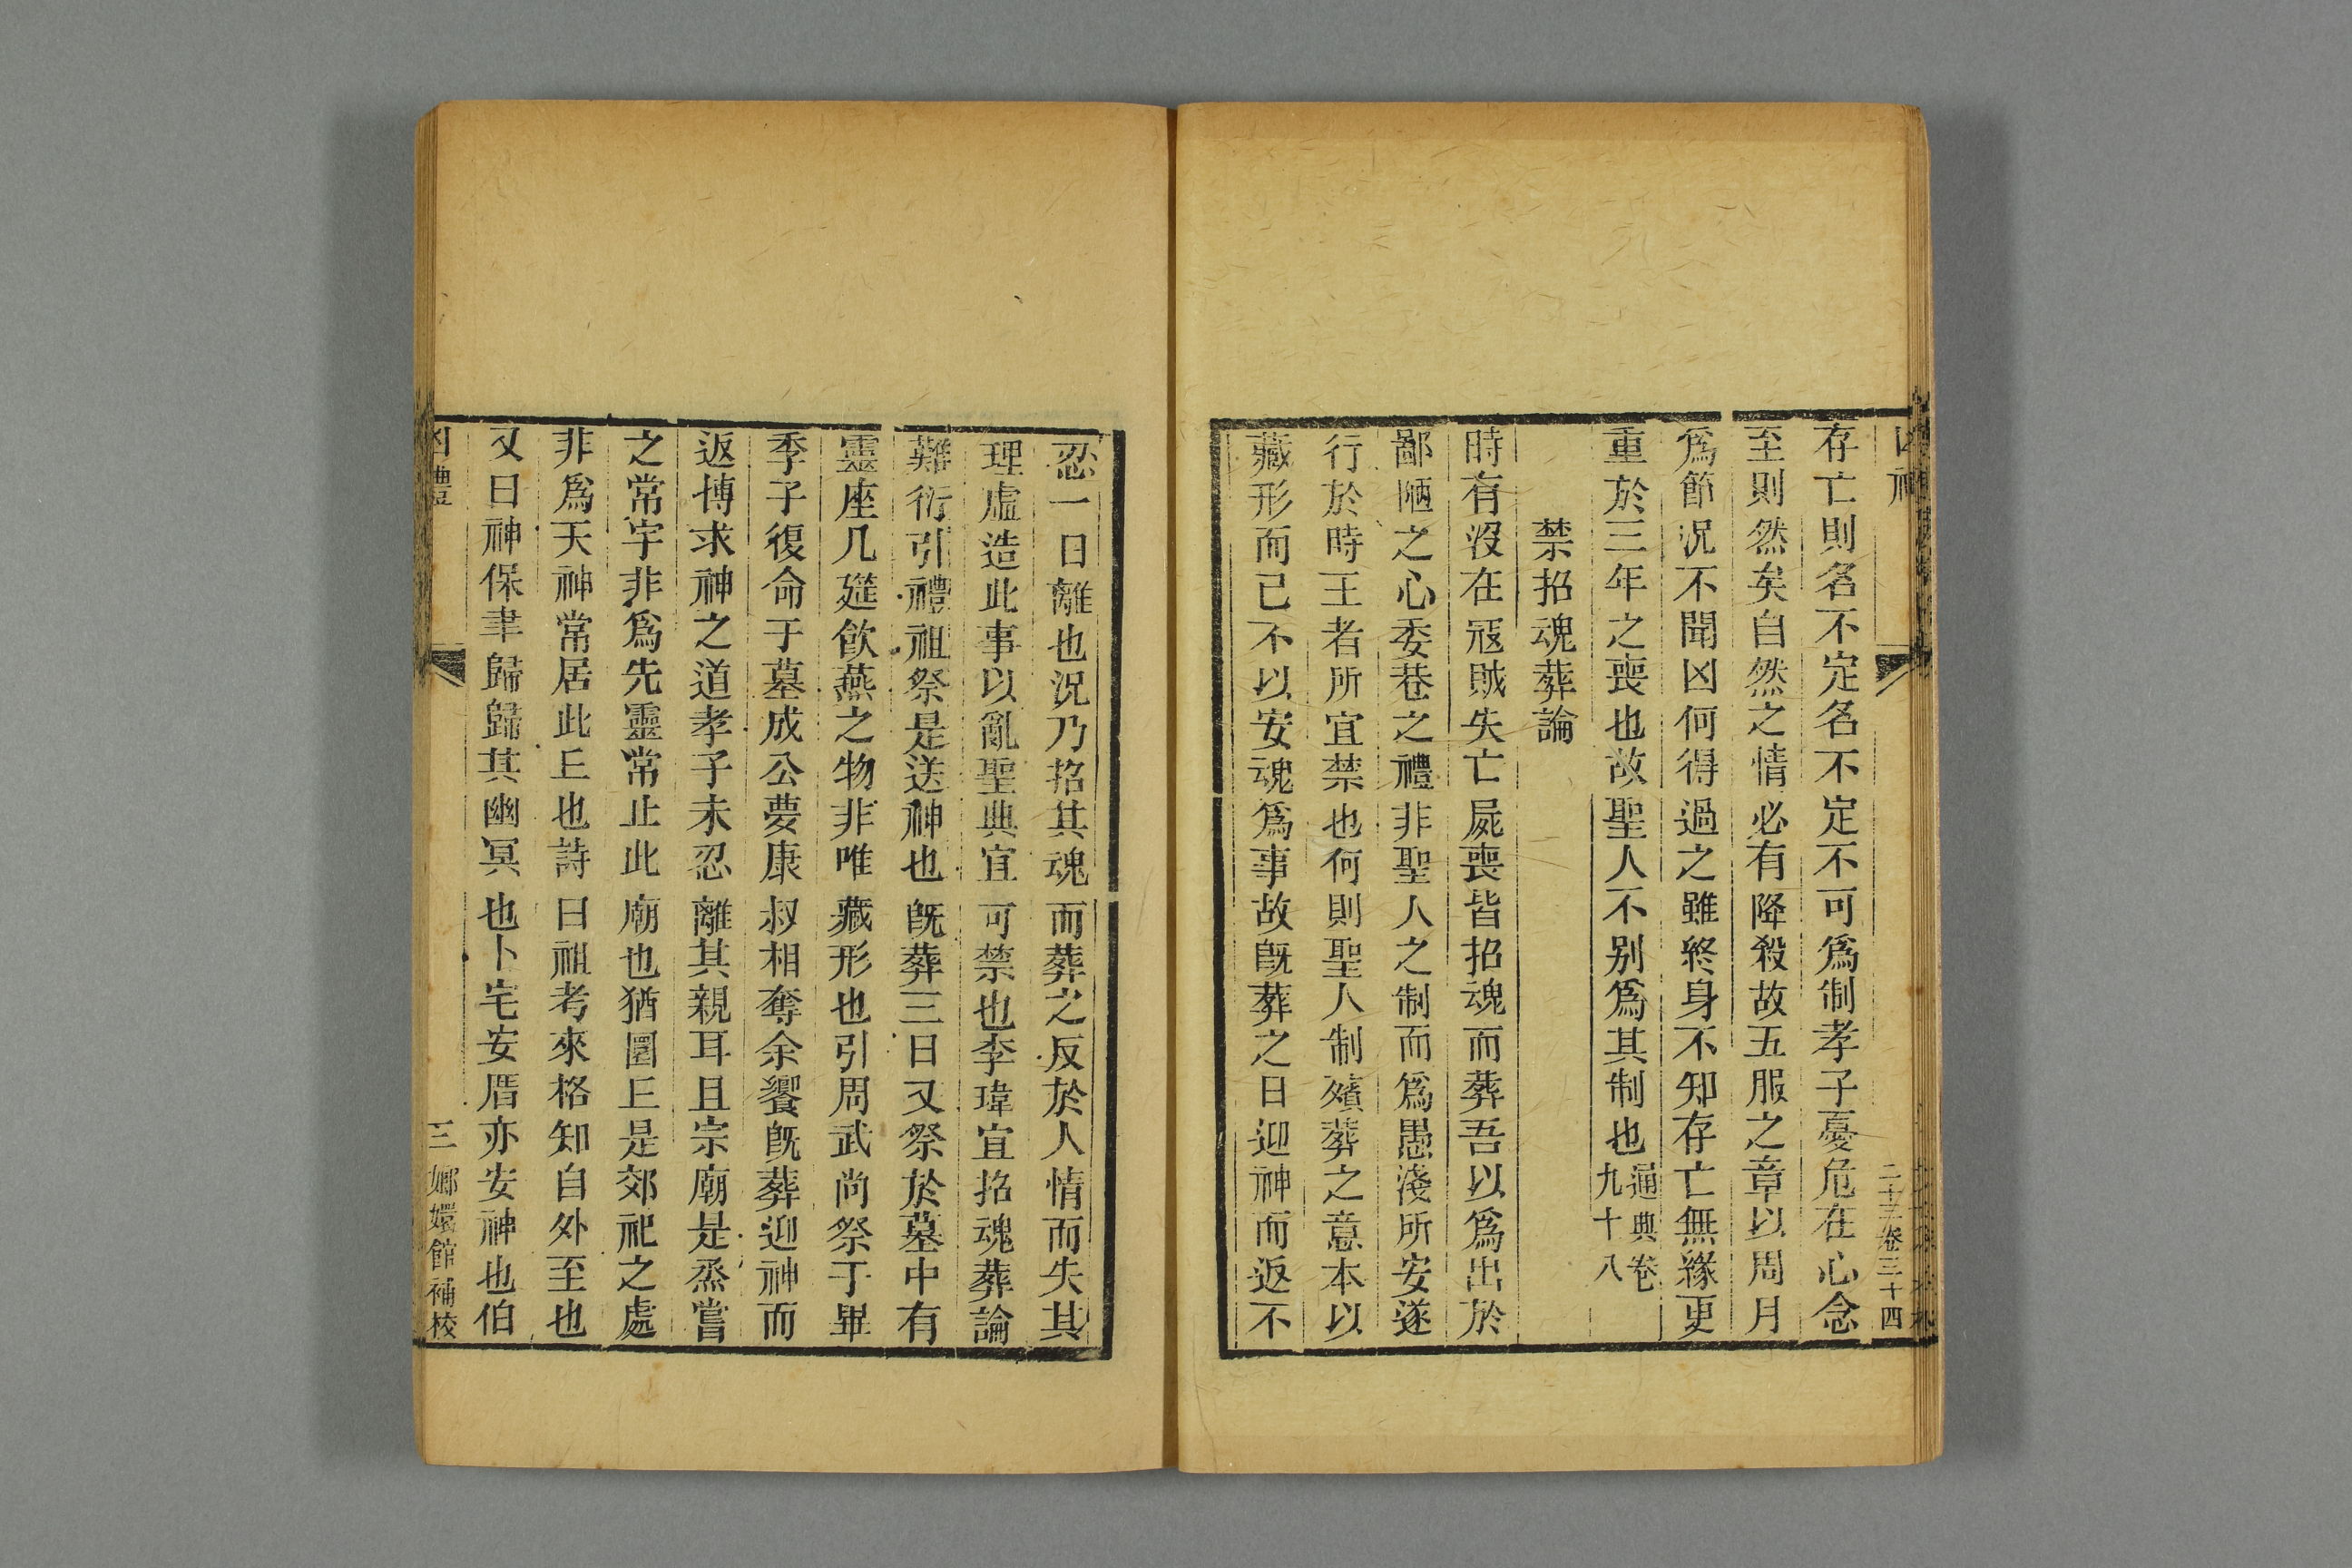 存亡則名不定名不定不可爲制孝子憂危在心念
至則然矣自然之情必有降殺故五服之章以周月
爲節况不聞凶何得過之雖終身不知存亡無緣更
重於三年之喪也故聖人不別爲其制也通典卷九十八
禁招魂葬論
時有沒在寇賊失亡屍喪皆招魂而葬吾以爲出於
鄙陋之心委巷之禮非聖人之制而爲愚淺所安遂
行於時王者所宜禁也何則聖人制殯葬之意本以
藏形而已不以安魂爲事故旣葬之日迎神而返不
忍一日離也况乃招其魂而葬之反於人情而失其
理虛造此事以亂聖典宜可禁也李瑋宜招魂葬論
難衍引禮祖祭是送神也旣葬三日又祭於墓中有
靈座几筵飮燕之物非唯藏形也引周武尚祭于畢
季子復命于墓成公夢康叔相奪余饗旣葬迎神而
返博求神之道孝子未忍離其親耳且宗廟是烝嘗
之常宇非爲先靈常止此廟也猶圜丘是郊祀之處
非爲天神常居此丘也詩曰祖考來格知自外至也
又曰神保聿歸歸其幽冥也卜宅安厝亦安神也伯
凶禮
三 嫏嬛館補校